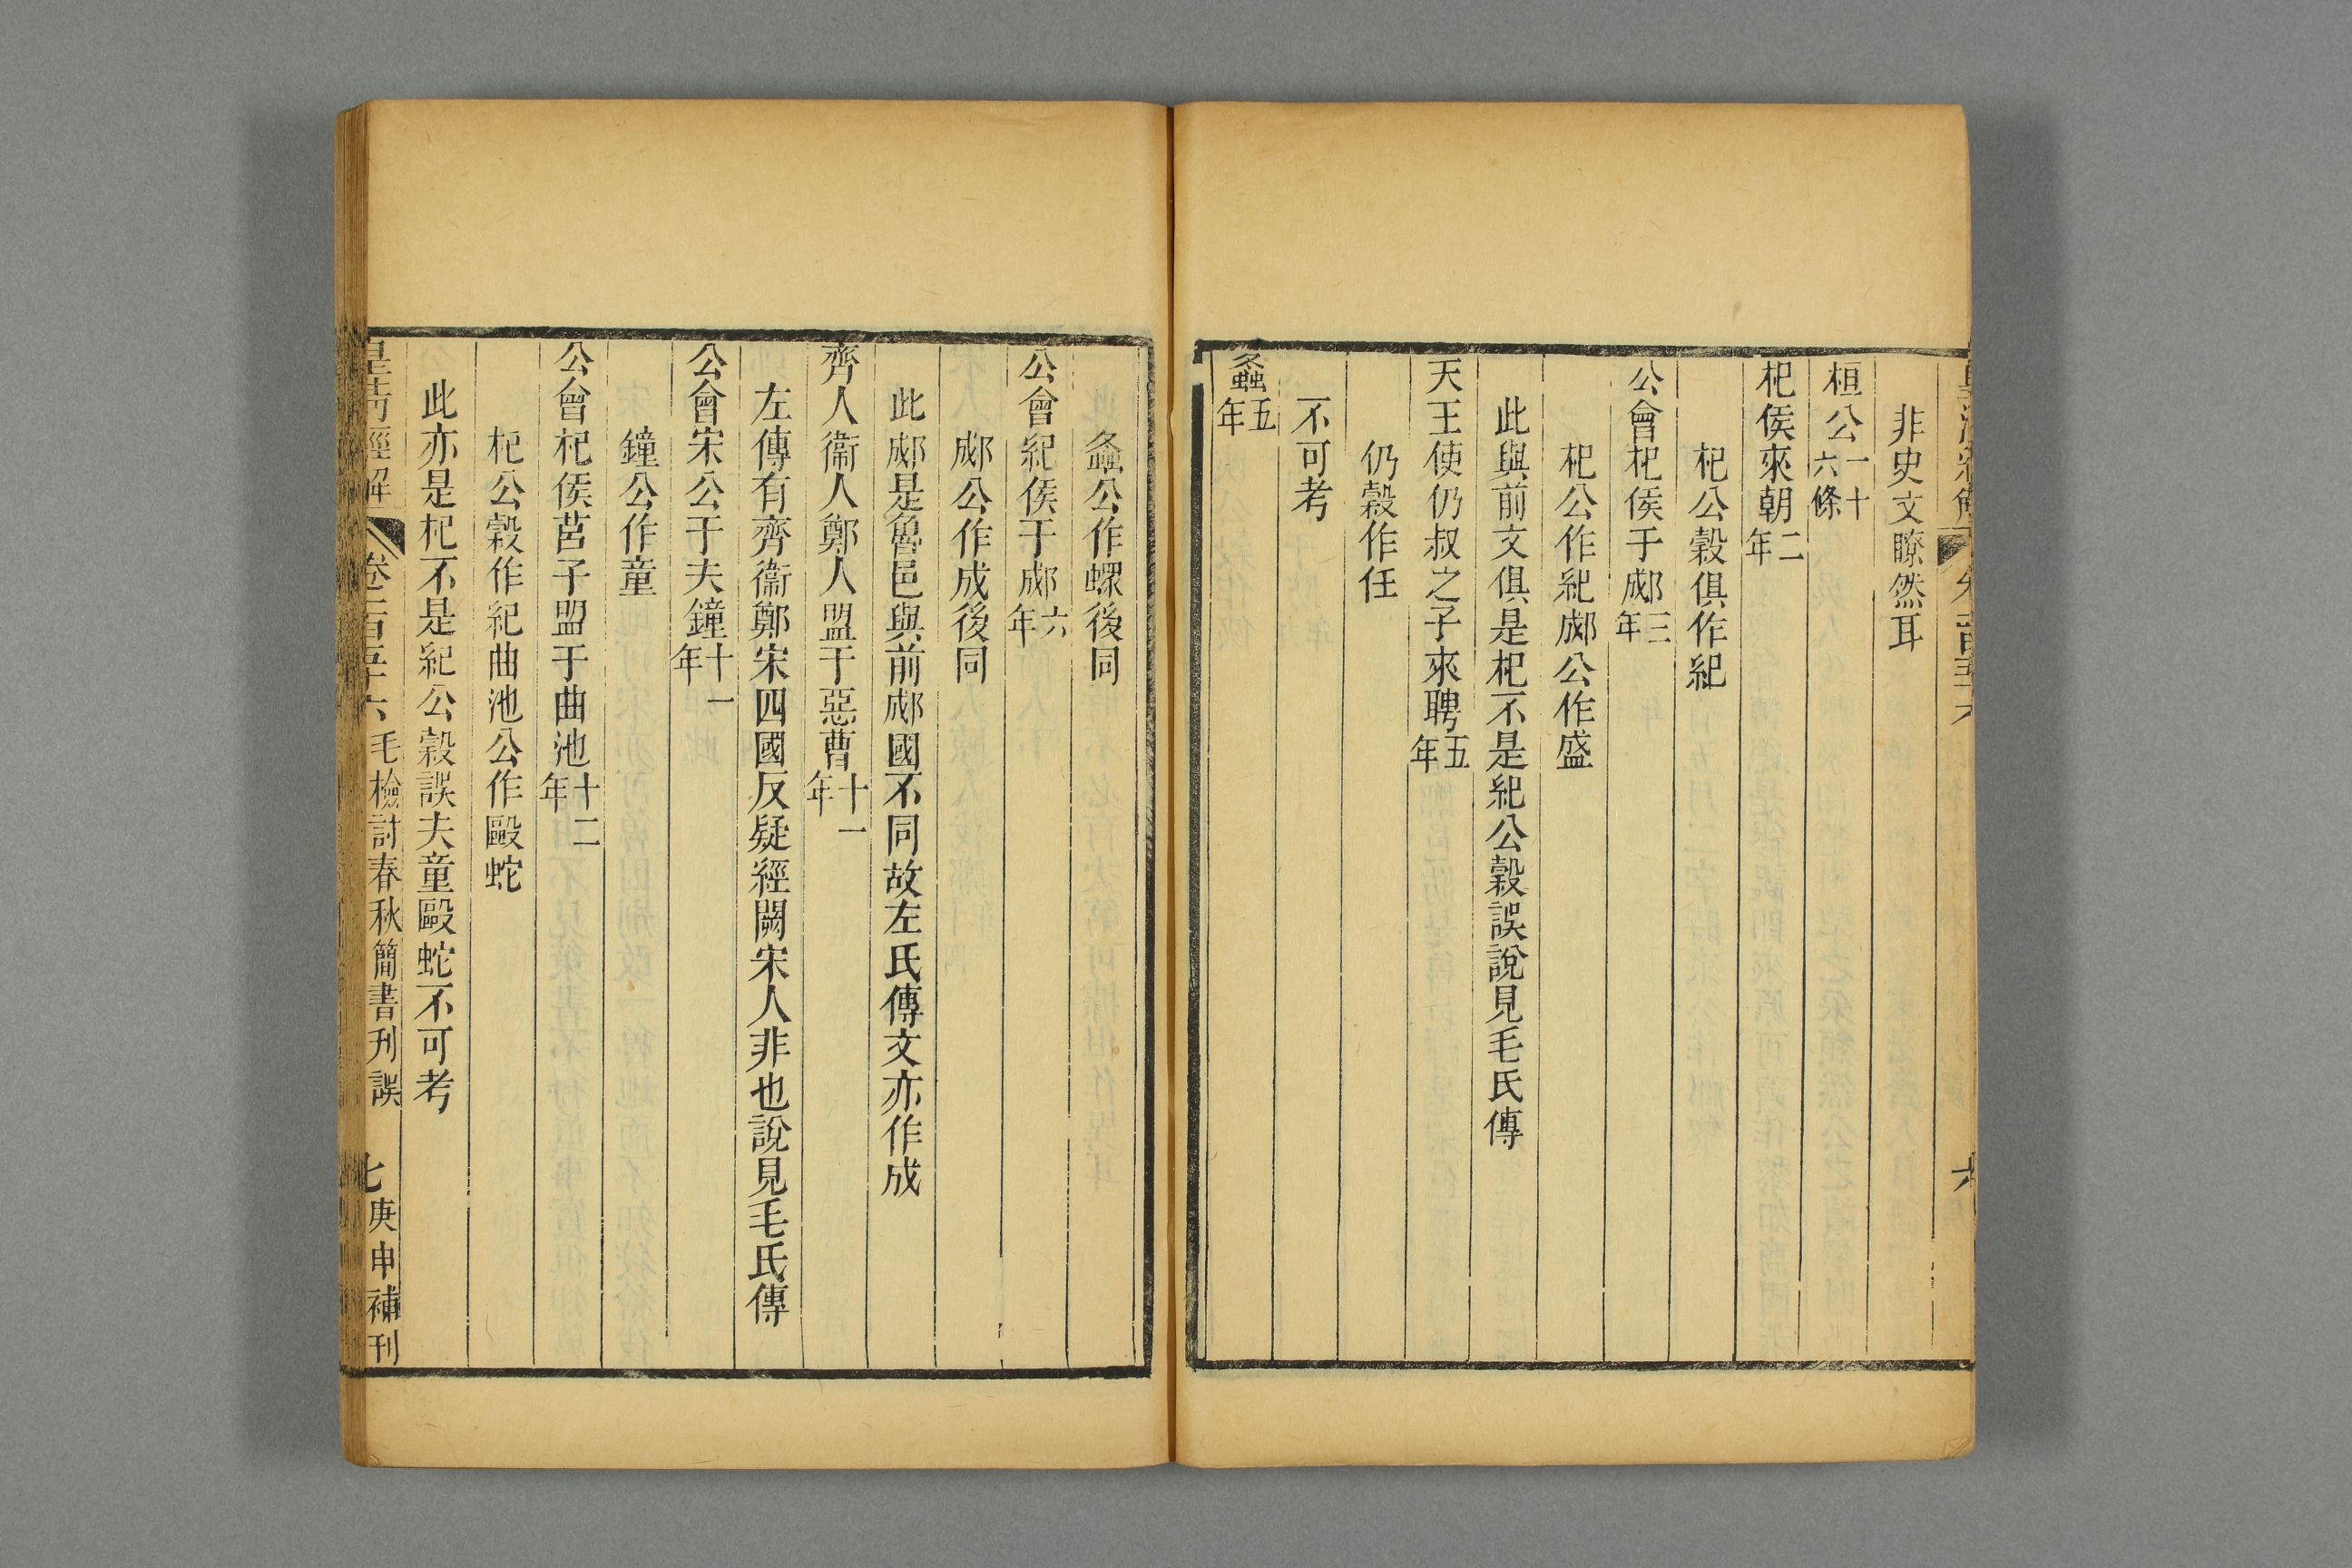 非史文瞭然耳
桓公一十六條
杞侯來朝二年
杞公穀俱作紀
公會杞侯于郕三年
杞公作紀郕公作盛
此與前文俱是杞不是紀公穀誤說見毛氏傳
天王使仍叔之子來聘五年
仍穀作任
不可考
螽五年
螽公作螺後同
公會紀侯于郕六年
郕公作成後同
此郕是魯邑與前郕國不同故左氏傳文亦作成
齊人衞人鄭人盟于惡曹十一年
左傳有齊衞鄭宋四國反疑經闕宋人非也說見毛氏傳
公會宋公于夫鐘十一年
鐘公作童
公會杞侯莒子盟于曲池十二年
杞公穀作紀曲池公作毆蛇
此亦是杞不是紀公穀誤夫童毆蛇不可考
皇淸經解 卷一百五十六 毛檢討春秋簡書刊誤 七 庚申補刊